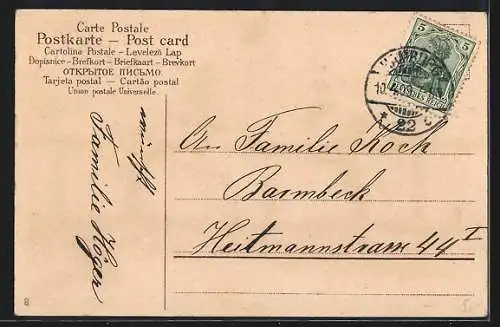 Carte Postale
Postkarte – Post card
Cartolina Postale – Levelező Lap
Dopisnice – Brefkort – Briefkaart – Brevkort
ОТКРЫТОЕ ПИСЬМО
Tarjeta postal – Cartão postal
Union postale Universelle.
5 5
* 22
wünscht
Familie Höger
An Familie Koch
Barmbeck
Heitmannstrasse 44 I
8